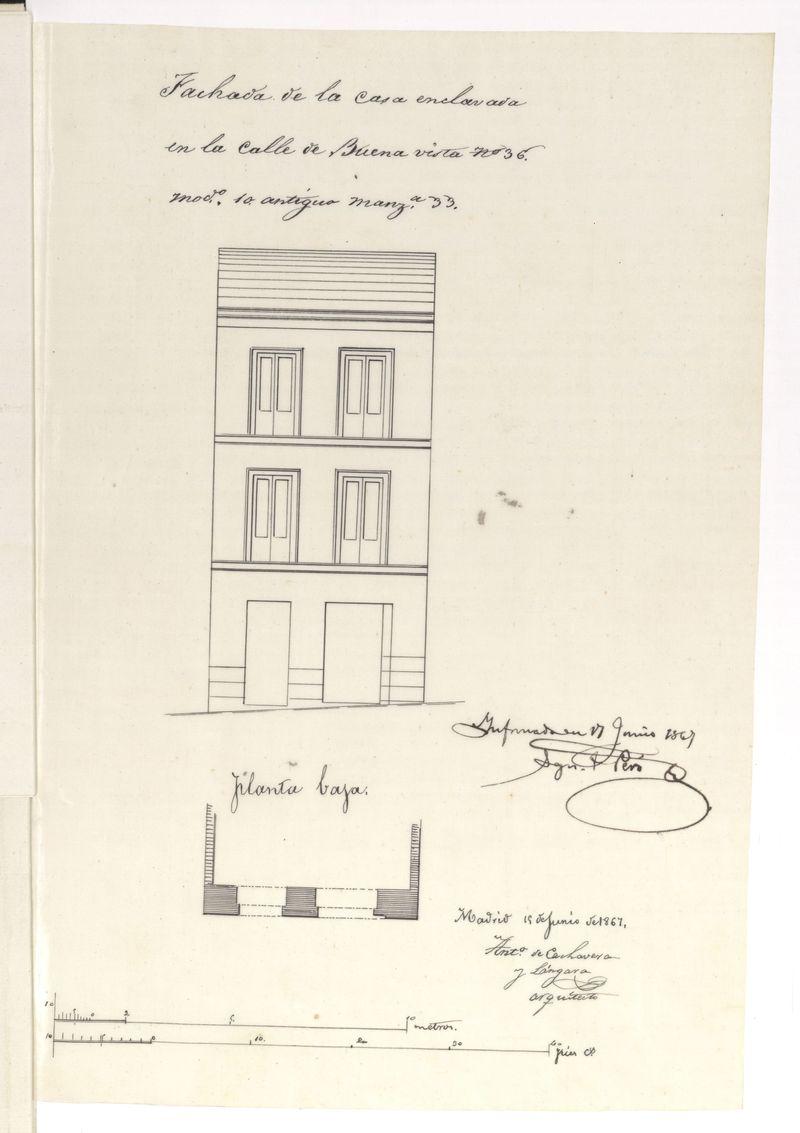 Fachada de la casa enclavada
en la calle de Buena vista nº 36.
modº. 10 antiguo manz.ª 33.
Informada en 17 Junio 1867
Planta baja.
Madrid 15 de Junio de 1867.
Antº. de Cachavera
y Lángara
arquitecto
10 5 0 2 5 10 metros.
10 5 0 10 20 30 40 pies